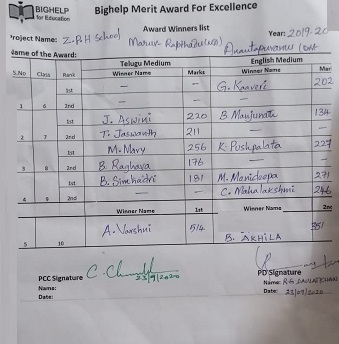 BIGHELP for Education
Bighelp Merit Award For Excellence
Award Winners list Year: 2019-20
Project Name: Z.P.H School
Name of the Award:
Telugu Medium English Medium
S.No Class Rank Winner Name Marks Winner Name Mar
1st — — G. Kaaveri 202
1 6 2nd — — — —
1st J. Aswini 220 B. Manjunath 134
2 7 2nd T. Jaswanth 211 —
1st M. Mary 256 K. Pushpalata 227
3 8 2nd B. Raghava 176 — —
1st B. Simhadri 181 M. Manideepa 271
4 9 2nd — — C. Mahalakshmi 246
Winner Name 1st Winner Name 2nd
A. Varshni 514 B. AKHILA 351
5 10
PCC Signature 23/9/2020 PD Signature
Name: Name:
Date: Date: 23/09/2020